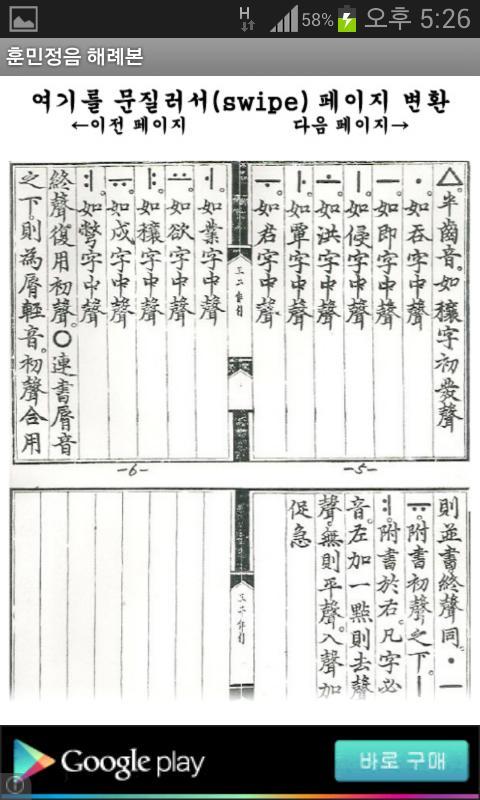 H
58%
오후 5:26
훈민정음 해례본
여기를 문질러서(swipe) 페이지 변환
←이전 페이지
다음 페이지→
△半齒音。如穰字初發聲
ㆍ如呑字中聲
ㅡ如即字中聲
ㅣ如侵字中聲
ㅗ如洪字中聲
ㅏ如覃字中聲
ㅜ如君字中聲
ㅓ如業字中聲
ㅛ如欲字中聲
ㅑ如穰字中聲
ㅠ如戌字中聲
ㅕ如彆字中聲
終聲復用初聲。○連書脣音
之下。則為脣輕音。初聲合用
-5-
-6-
則並書終聲同。ㆍㅡ
ㅠ。附書初聲之下。ㅣ
ㅕ。附書於右。凡字必
音。左加一點則去聲
聲。無則平聲。入聲加
促急
Google play
바로 구매